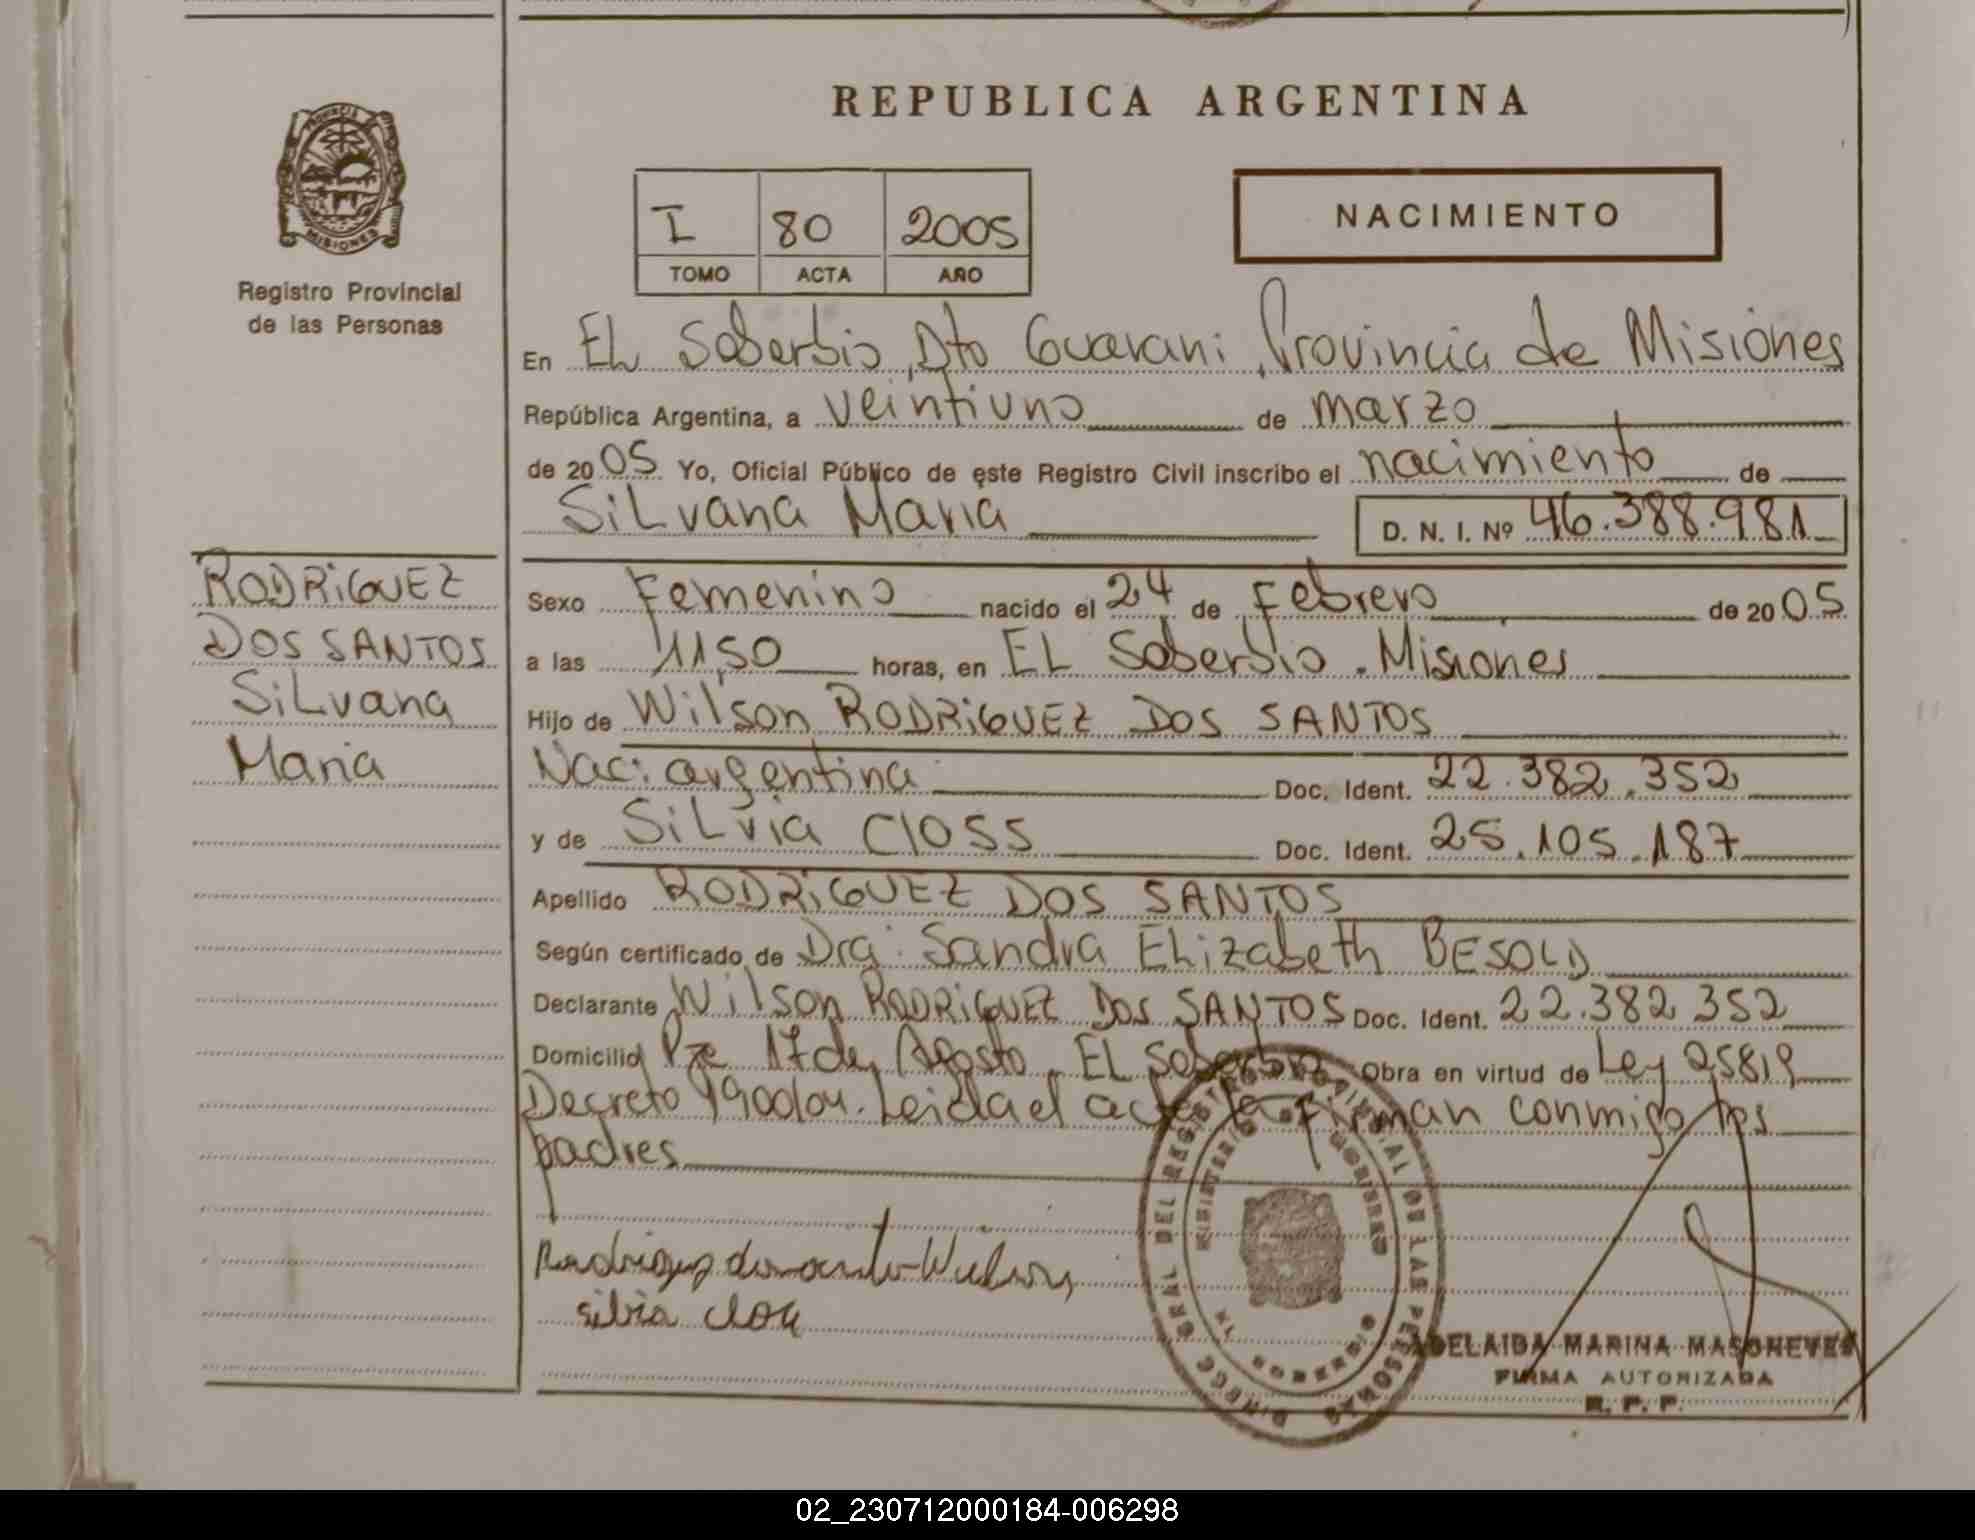 REPUBLICA ARGENTINA
PROVINCIA DE
MISIONES
Registro Provincial
de las Personas
I 80 2005
TOMO ACTA AÑO
NACIMIENTO
En EL Soberbio, Dto Guarani, Provincia de Misiones
República Argentina, a veintiuno de marzo
de 2005 Yo, Oficial Público de este Registro Civil inscribo el nacimiento de
SiLvana Maria D. N. I. Nº 46.388.981
RODRiGUEZ
DOS SANTOS
SiLvana
Maria
Sexo Femenino nacido el 24 de Febrero de 2005
a las 11,50 horas, en EL Soberbio. Misiones
Hijo de Wilson RODRiGUEZ DOS SANTOS
Nac: argentina Doc. Ident. 22.382.352
y de SiLvia Closs Doc. Ident. 25.105.187
Apellido RODRiGUEZ DOS SANTOS
Según certificado de Dra. Sandra Elizabeth BESOLD
Declarante Wilson RODRiGUEZ Dos SANTOS Doc. Ident. 22.382 352
Domicilio Pje 17 de Agosto. EL Soberbio Obra en virtud de Ley 25819
Decreto 190/04. Leida el acta la firman conmigo los
padres
Rodriguez dos santos Wilson
silvia closs
DIRECC GRAL DEL REGISTRO PROVINCIAL DE LAS PERSONAS
MINISTERIO DE GOBIERNO
EL SOBERBIO
ADELAIDA MARINA MASONEVES
FIRMA AUTORIZADA
R. P. P.
02_230712000184-006298